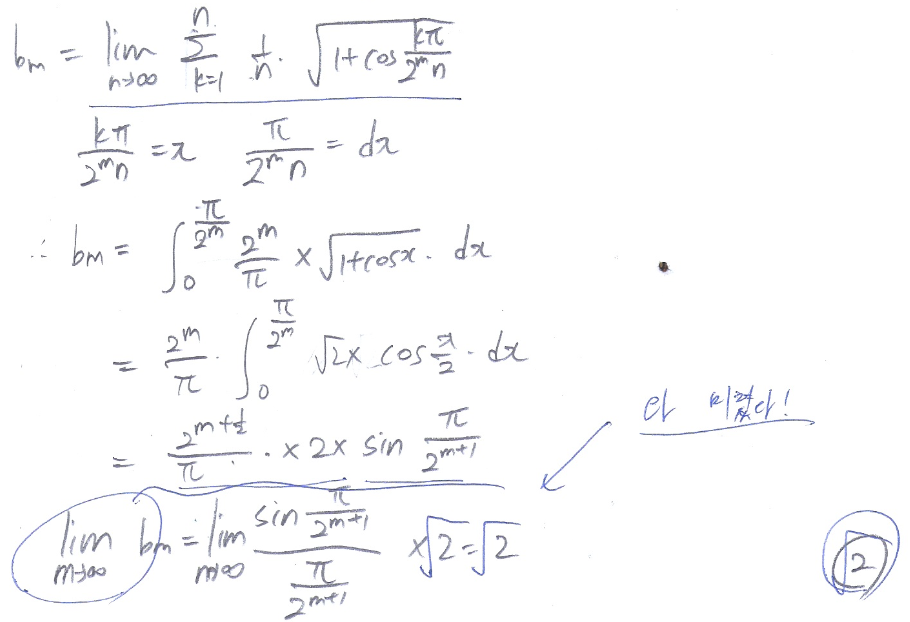 bₘ = lim_{n→∞} Σ_{k=1}^{n} 1/n · √(1+cos kπ/(2^m n))
kπ/(2^m n) = x    π/(2^m n) = dx
∴ bₘ = ∫_0^{π/2^m} 2^m/π × √(1+cosx) · dx
= 2^m/π · ∫_0^{π/2^m} √2 × cos x/2 · dx
= 2^{m+1/2}/π · × 2 × sin π/2^{m+1}
lim_{m→∞} bₘ = lim_{m→∞} (sin π/2^{m+1})/(π/2^{m+1}) × √2 = √2
√2